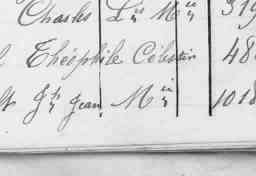 Charles Lis Mie 319
Théophile Célestin 48
Jh Jean Min 1018